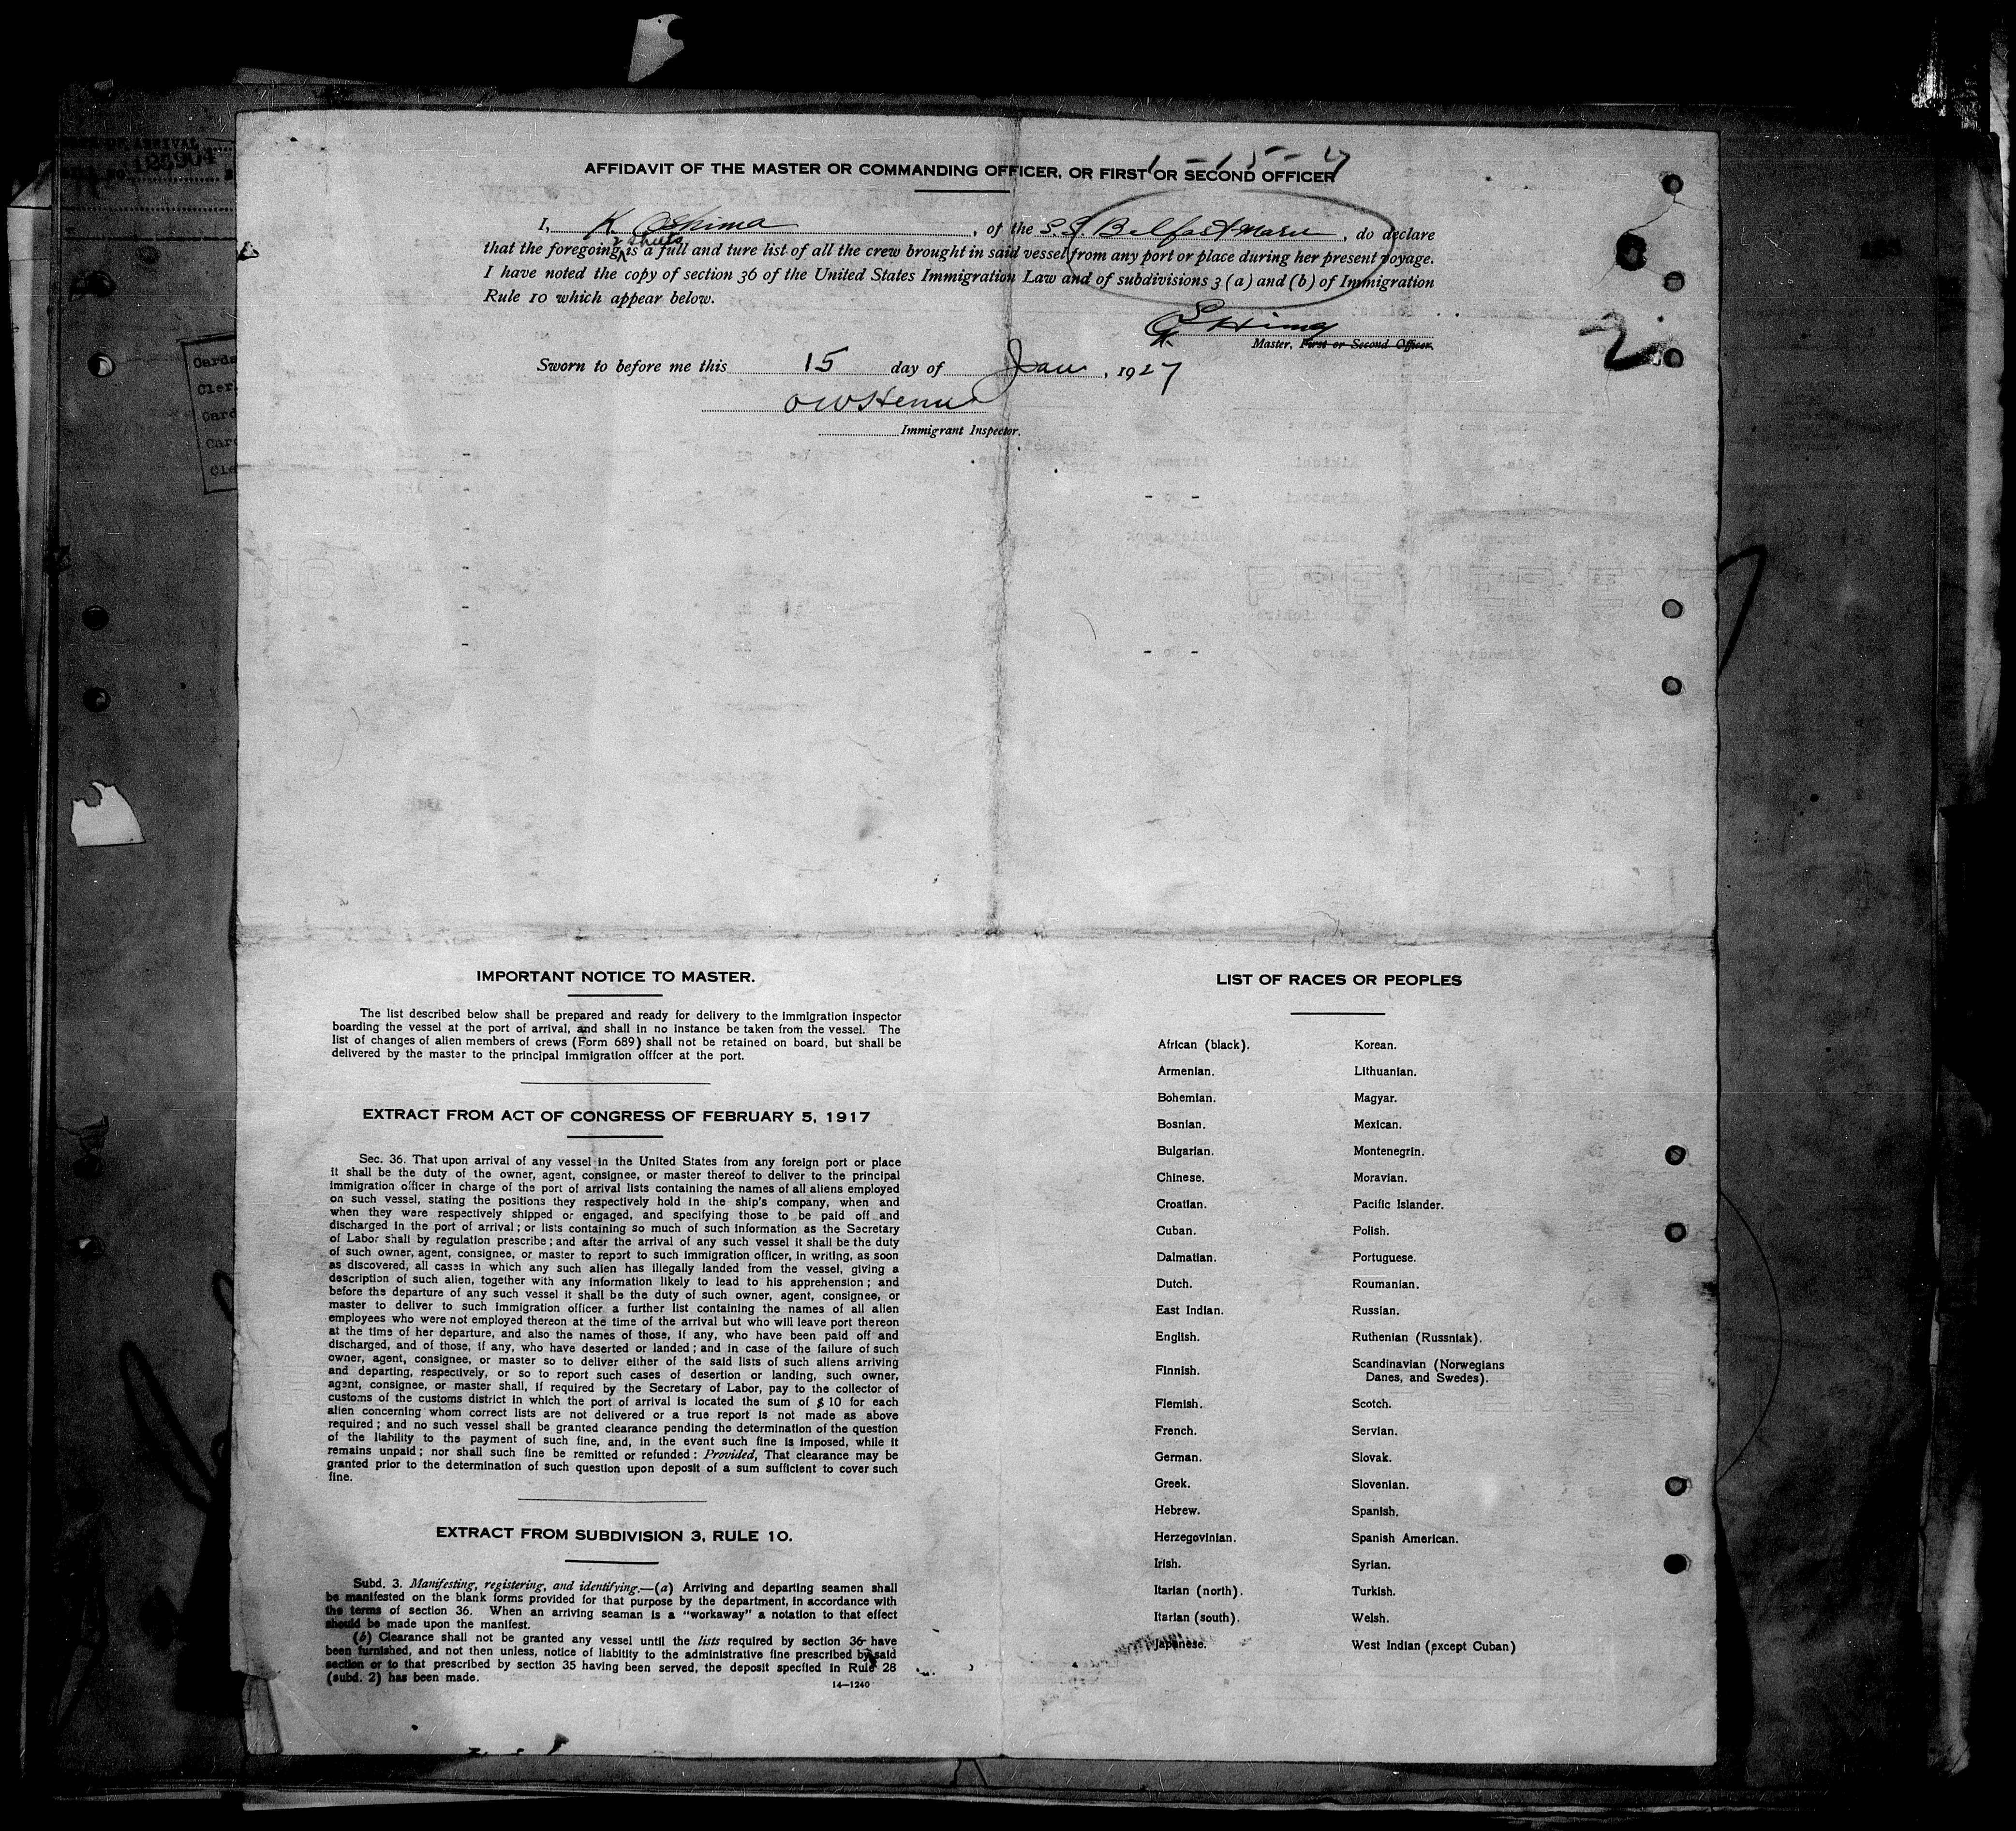 OF ARRIVAL
123904
1-15-27
AFFIDAVIT OF THE MASTER OR COMMANDING OFFICER, OR FIRST OR SECOND OFFICER
I, K Oshima, of the S.S. Belfast Maru, do declare
2 sheets
that the foregoing is a full and ture list of all the crew brought in said vessel from any port or place during her present voyage.
I have noted the copy of section 36 of the United States Immigration Law and of subdivisions 3 (a) and (b) of Immigration
Rule 10 which appear below.
Master, First or Second Officer.
2
Sworn to before me this 15 day of Jan, 1927
Immigrant Inspector.
Cards
Cler
Card
Card
Cle
PREMIER EXT
NG
IMPORTANT NOTICE TO MASTER.
The list described below shall be prepared and ready for delivery to the immigration inspector
boarding the vessel at the port of arrival, and shall in no instance be taken from the vessel. The
list of changes of alien members of crews (Form 689) shall not be retained on board, but shall be
delivered by the master to the principal immigration officer at the port.
EXTRACT FROM ACT OF CONGRESS OF FEBRUARY 5, 1917
Sec. 36. That upon arrival of any vessel in the United States from any foreign port or place
it shall be the duty of the owner, agent, consignee, or master thereof to deliver to the principal
immigration officer in charge of the port of arrival lists containing the names of all aliens employed
on such vessel, stating the positions they respectively hold in the ship's company, when and
when they were respectively shipped or engaged, and specifying those to be paid off and
discharged in the port of arrival; or lists containing so much of such information as the Secretary
of Labor shall by regulation prescribe; and after the arrival of any such vessel it shall be the duty
of such owner, agent, consignee, or master to report to such immigration officer, in writing, as soon
as discovered, all cases in which any such alien has illegally landed from the vessel, giving a
description of such alien, together with any information likely to lead to his apprehension; and
before the departure of any such vessel it shall be the duty of such owner, agent, consignee, or
master to deliver to such immigration officer a further list containing the names of all alien
employees who were not employed thereon at the time of the arrival but who will leave port thereon
at the time of her departure, and also the names of those, if any, who have been paid off and
discharged, and of those, if any, who have deserted or landed; and in case of the failure of such
owner, agent, consignee, or master so to deliver either of the said lists of such aliens arriving
and departing, respectively, or so to report such cases of desertion or landing, such owner,
agent, consignee, or master shall, if required by the Secretary of Labor, pay to the collector of
customs of the customs district in which the port of arrival is located the sum of $ 10 for each
alien concerning whom correct lists are not delivered or a true report is not made as above
required; and no such vessel shall be granted clearance pending the determination of the question
of the liability to the payment of such fine, and, in the event such fine is imposed, while it
remains unpaid; nor shall such fine be remitted or refunded: Provided, That clearance may be
granted prior to the determination of such question upon deposit of a sum sufficient to cover such
fine.
EXTRACT FROM SUBDIVISION 3, RULE 10.
Subd. 3. Manifesting, registering, and identifying.—(a) Arriving and departing seamen shall
be manifested on the blank forms provided for that purpose by the department, in accordance with
the terms of section 36. When an arriving seaman is a "workaway" a notation to that effect
should be made upon the manifest.
(b) Clearance shall not be granted any vessel until the lists required by section 36 have
been furnished, and not then unless, notice of liabitity to the administrative fine prescribed by said
section or to that prescribed by section 35 having been served, the deposit specfied in Rule 28
(subd. 2) has been made.
14—1240
LIST OF RACES OR PEOPLES
African (black). Korean.
Armenian. Lithuanian.
Bohemian. Magyar.
Bosnian. Mexican.
Bulgarian. Montenegrin.
Chinese. Moravian.
Croatian. Pacific Islander.
Cuban. Polish.
Dalmatian. Portuguese.
Dutch. Roumanian.
East Indian. Russian.
English. Ruthenian (Russniak).
Finnish. Scandinavian (Norwegians
Danes, and Swedes).
Flemish. Scotch.
French. Servian.
German. Slovak.
Greek. Slovenian.
Hebrew. Spanish.
Herzegovinian. Spanish American.
Irish. Syrian.
Itarian (north). Turkish.
Itarian (south). Welsh.
Japanese. West Indian (except Cuban)